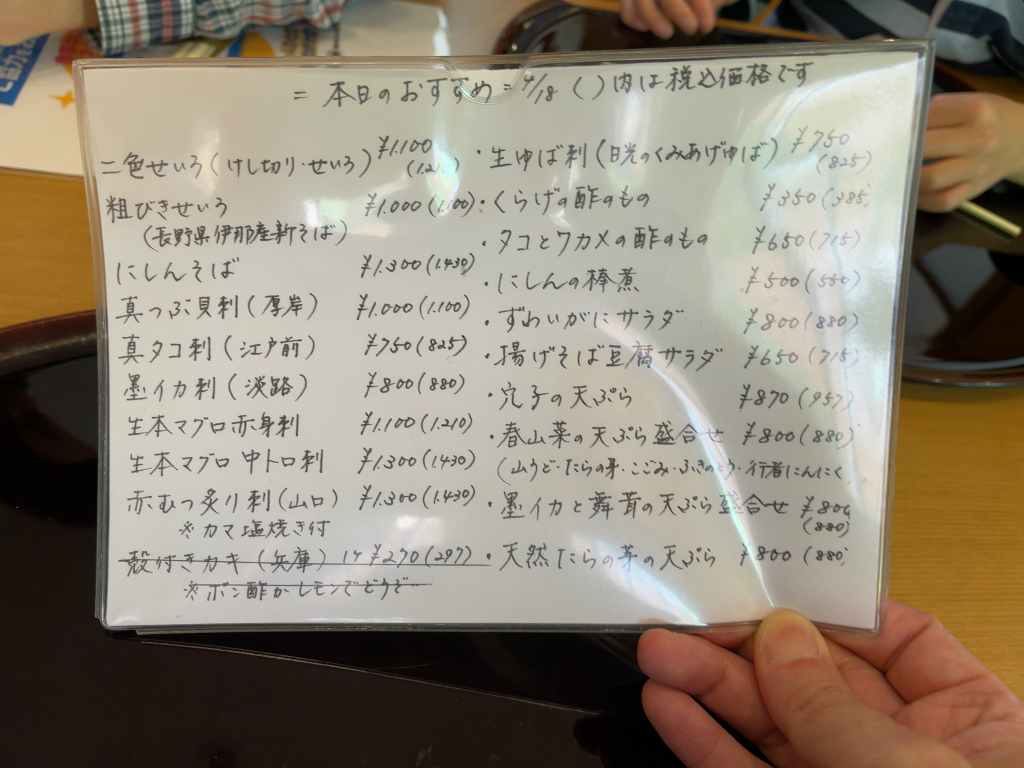 = 本日のおすすめ = 4/18 ( )内は税込価格です
二色せいろ(けし切り・せいろ) ¥1.100
(1.21
粗びきせいろ ¥1.000(1.100)
(長野県伊那産新そば)
にしんそば ¥1.300(1.430)
真つぶ貝刺(厚岸) ¥1.000(1.100)
真タコ刺(江戸前) ¥750(825)
墨イカ刺(淡路) ¥800(880)
生本マグロ赤身刺 ¥1.100(1.210)
生本マグロ中トロ刺 ¥1.300(1.430)
赤むつ炙り刺(山口) ¥1.300(1.430)
※カマ塩焼き付
殻付きカキ(兵庫) 1ケ ¥270(297)
※ポン酢かレモンでどうぞ
・生ゆば刺(日光のくみあげゆば) ¥750
(825)
・くらげの酢のもの ¥350(385)
・タコとワカメの酢のもの ¥650(715)
・にしんの棒煮 ¥500(550)
・ずわいがにサラダ ¥800(880)
・揚げそば豆腐サラダ ¥650(715)
・穴子の天ぷら ¥870(957)
・春山菜の天ぷら盛合せ ¥800(880)
(山うど・たらの芽・こごみ・ふきのとう・行者にんにく
・墨イカと舞茸の天ぷら盛合せ ¥800
(880)
・天然たらの芽の天ぷら ¥800(880)